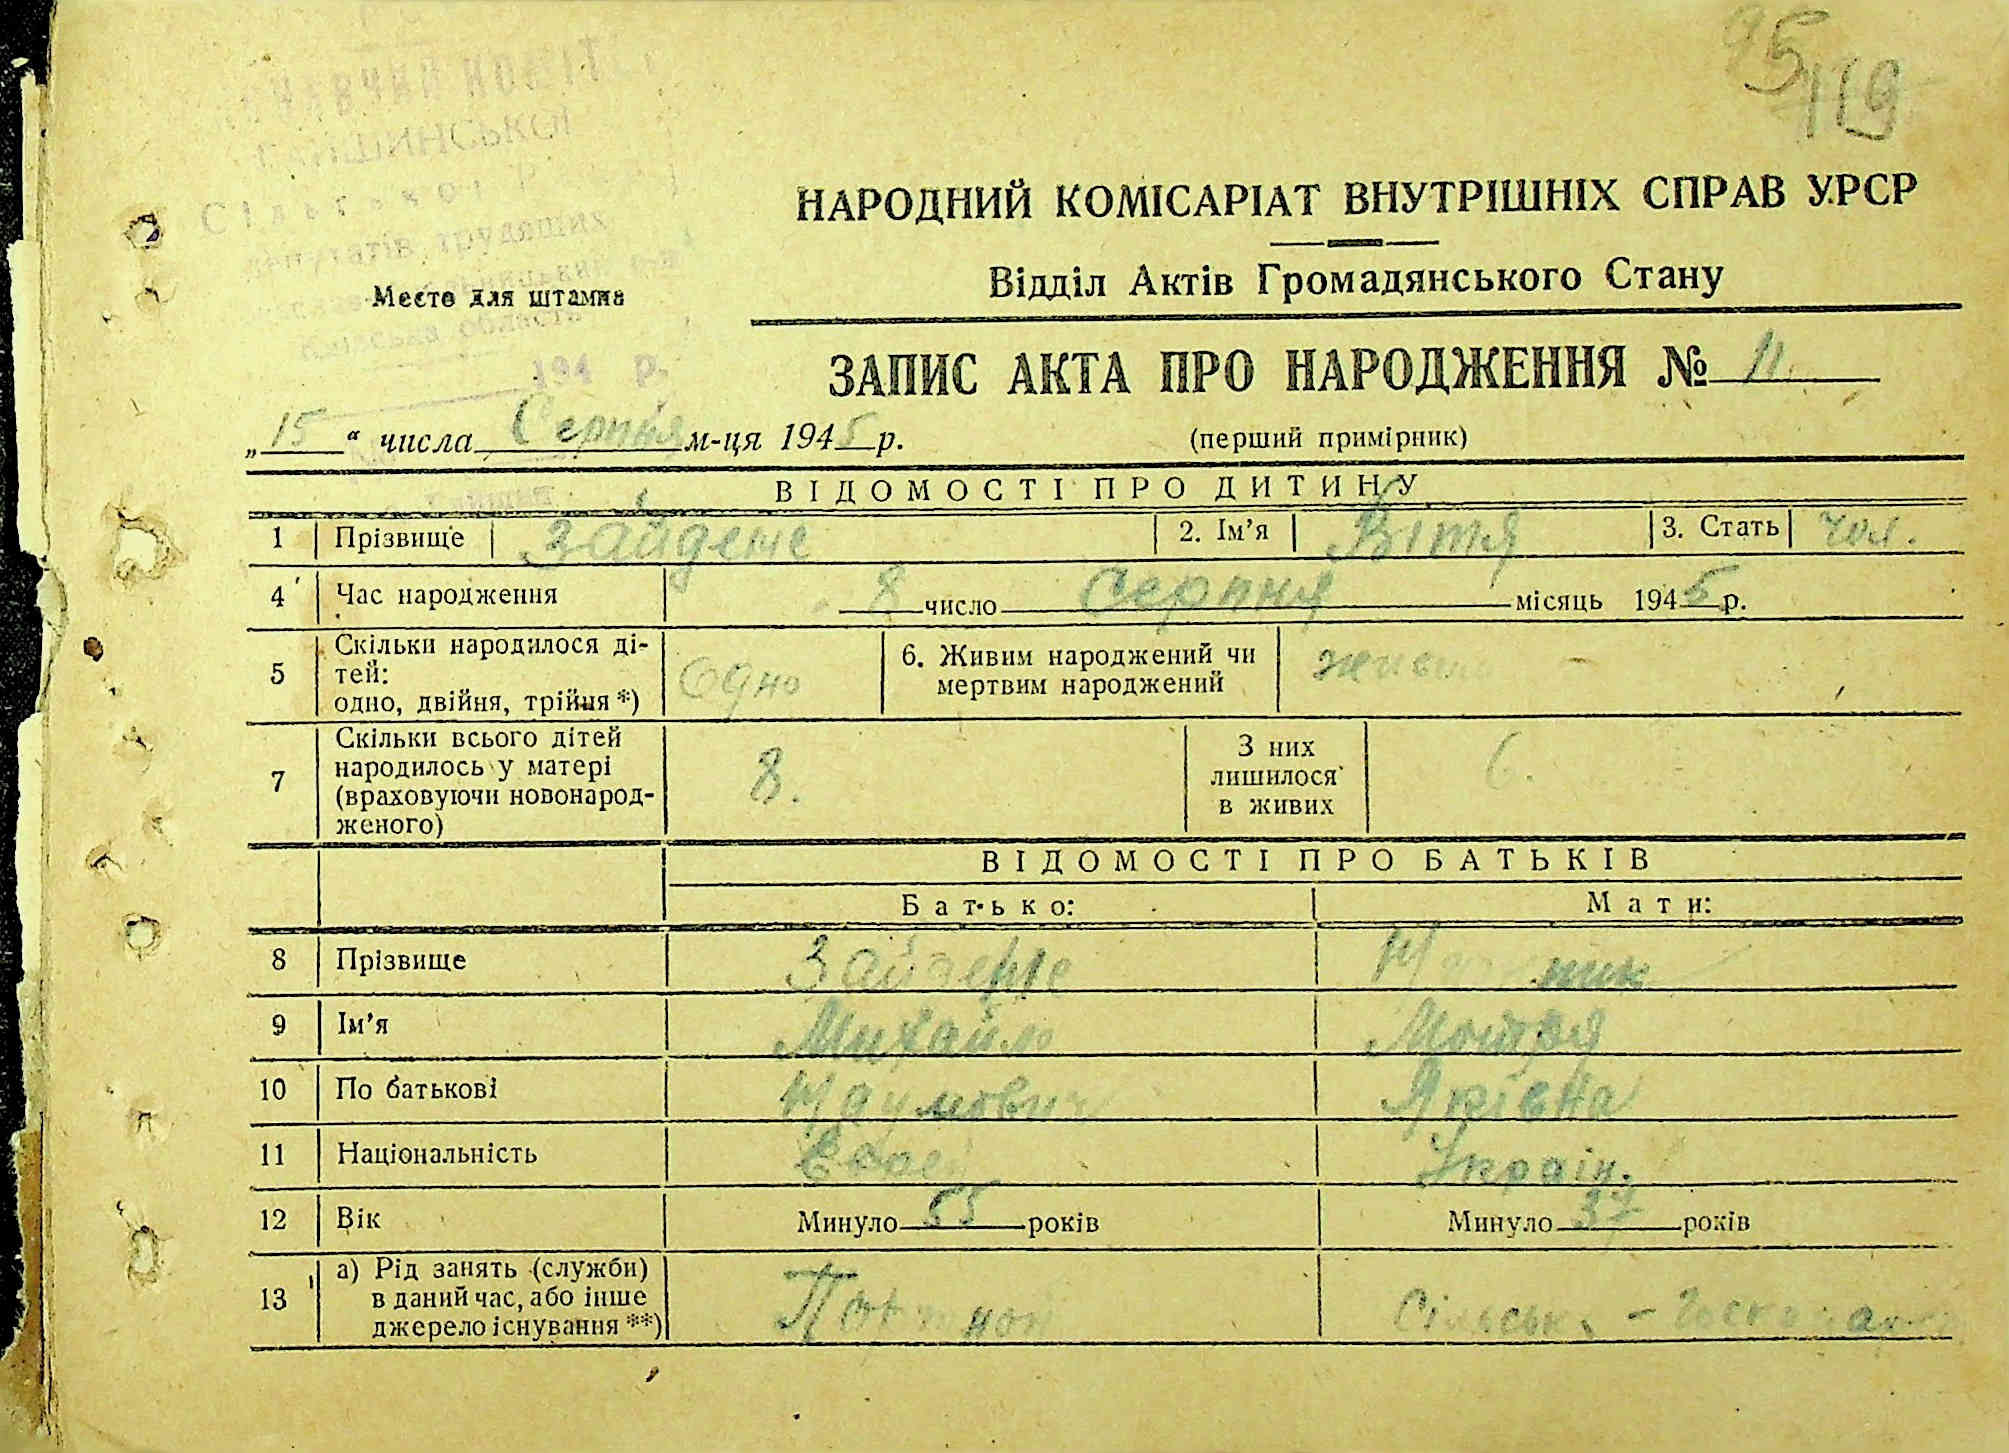 95
119
СІЛЬСЬКОЇ
депутатів трудящих
Київська область
194 р.
НАРОДНИЙ КОМІСАРІАТ ВНУТРІШНІХ СПРАВ УРСР
Відділ Актів Громадянського Стану
Место для штампа
ЗАПИС АКТА ПРО НАРОДЖЕННЯ № 11.
„15“ числа Серпня м-ця 1945 р.
(перший примірник)
ВІДОМОСТІ ПРО ДИТИНУ
1 Прізвище Зайдене 2. Ім’я Вітя 3. Стать чол.
4 Час народження 8 число Серпня місяць 1945 р.
5 Скільки народилося ді-
тей:
одно, двійня, трійня *) Одно
6. Живим народжений чи
мертвим народжений живим
7 Скільки всього дітей
народилось у матері
(враховуючи новонарод-
женого) 8.
З них
лишилося
в живих 6.
ВІДОМОСТІ ПРО БАТЬКІВ
Батько: Мати:
8 Прізвище Зайдене
9 Ім’я Михайло Мотря
10 По батькові Наумович Яківна
11 Національність Євр Україн.
12 Вік Минуло 55 років Минуло 37 років
13 а) Рід занять (служби)
в даний час, або інше
джерело існування **)